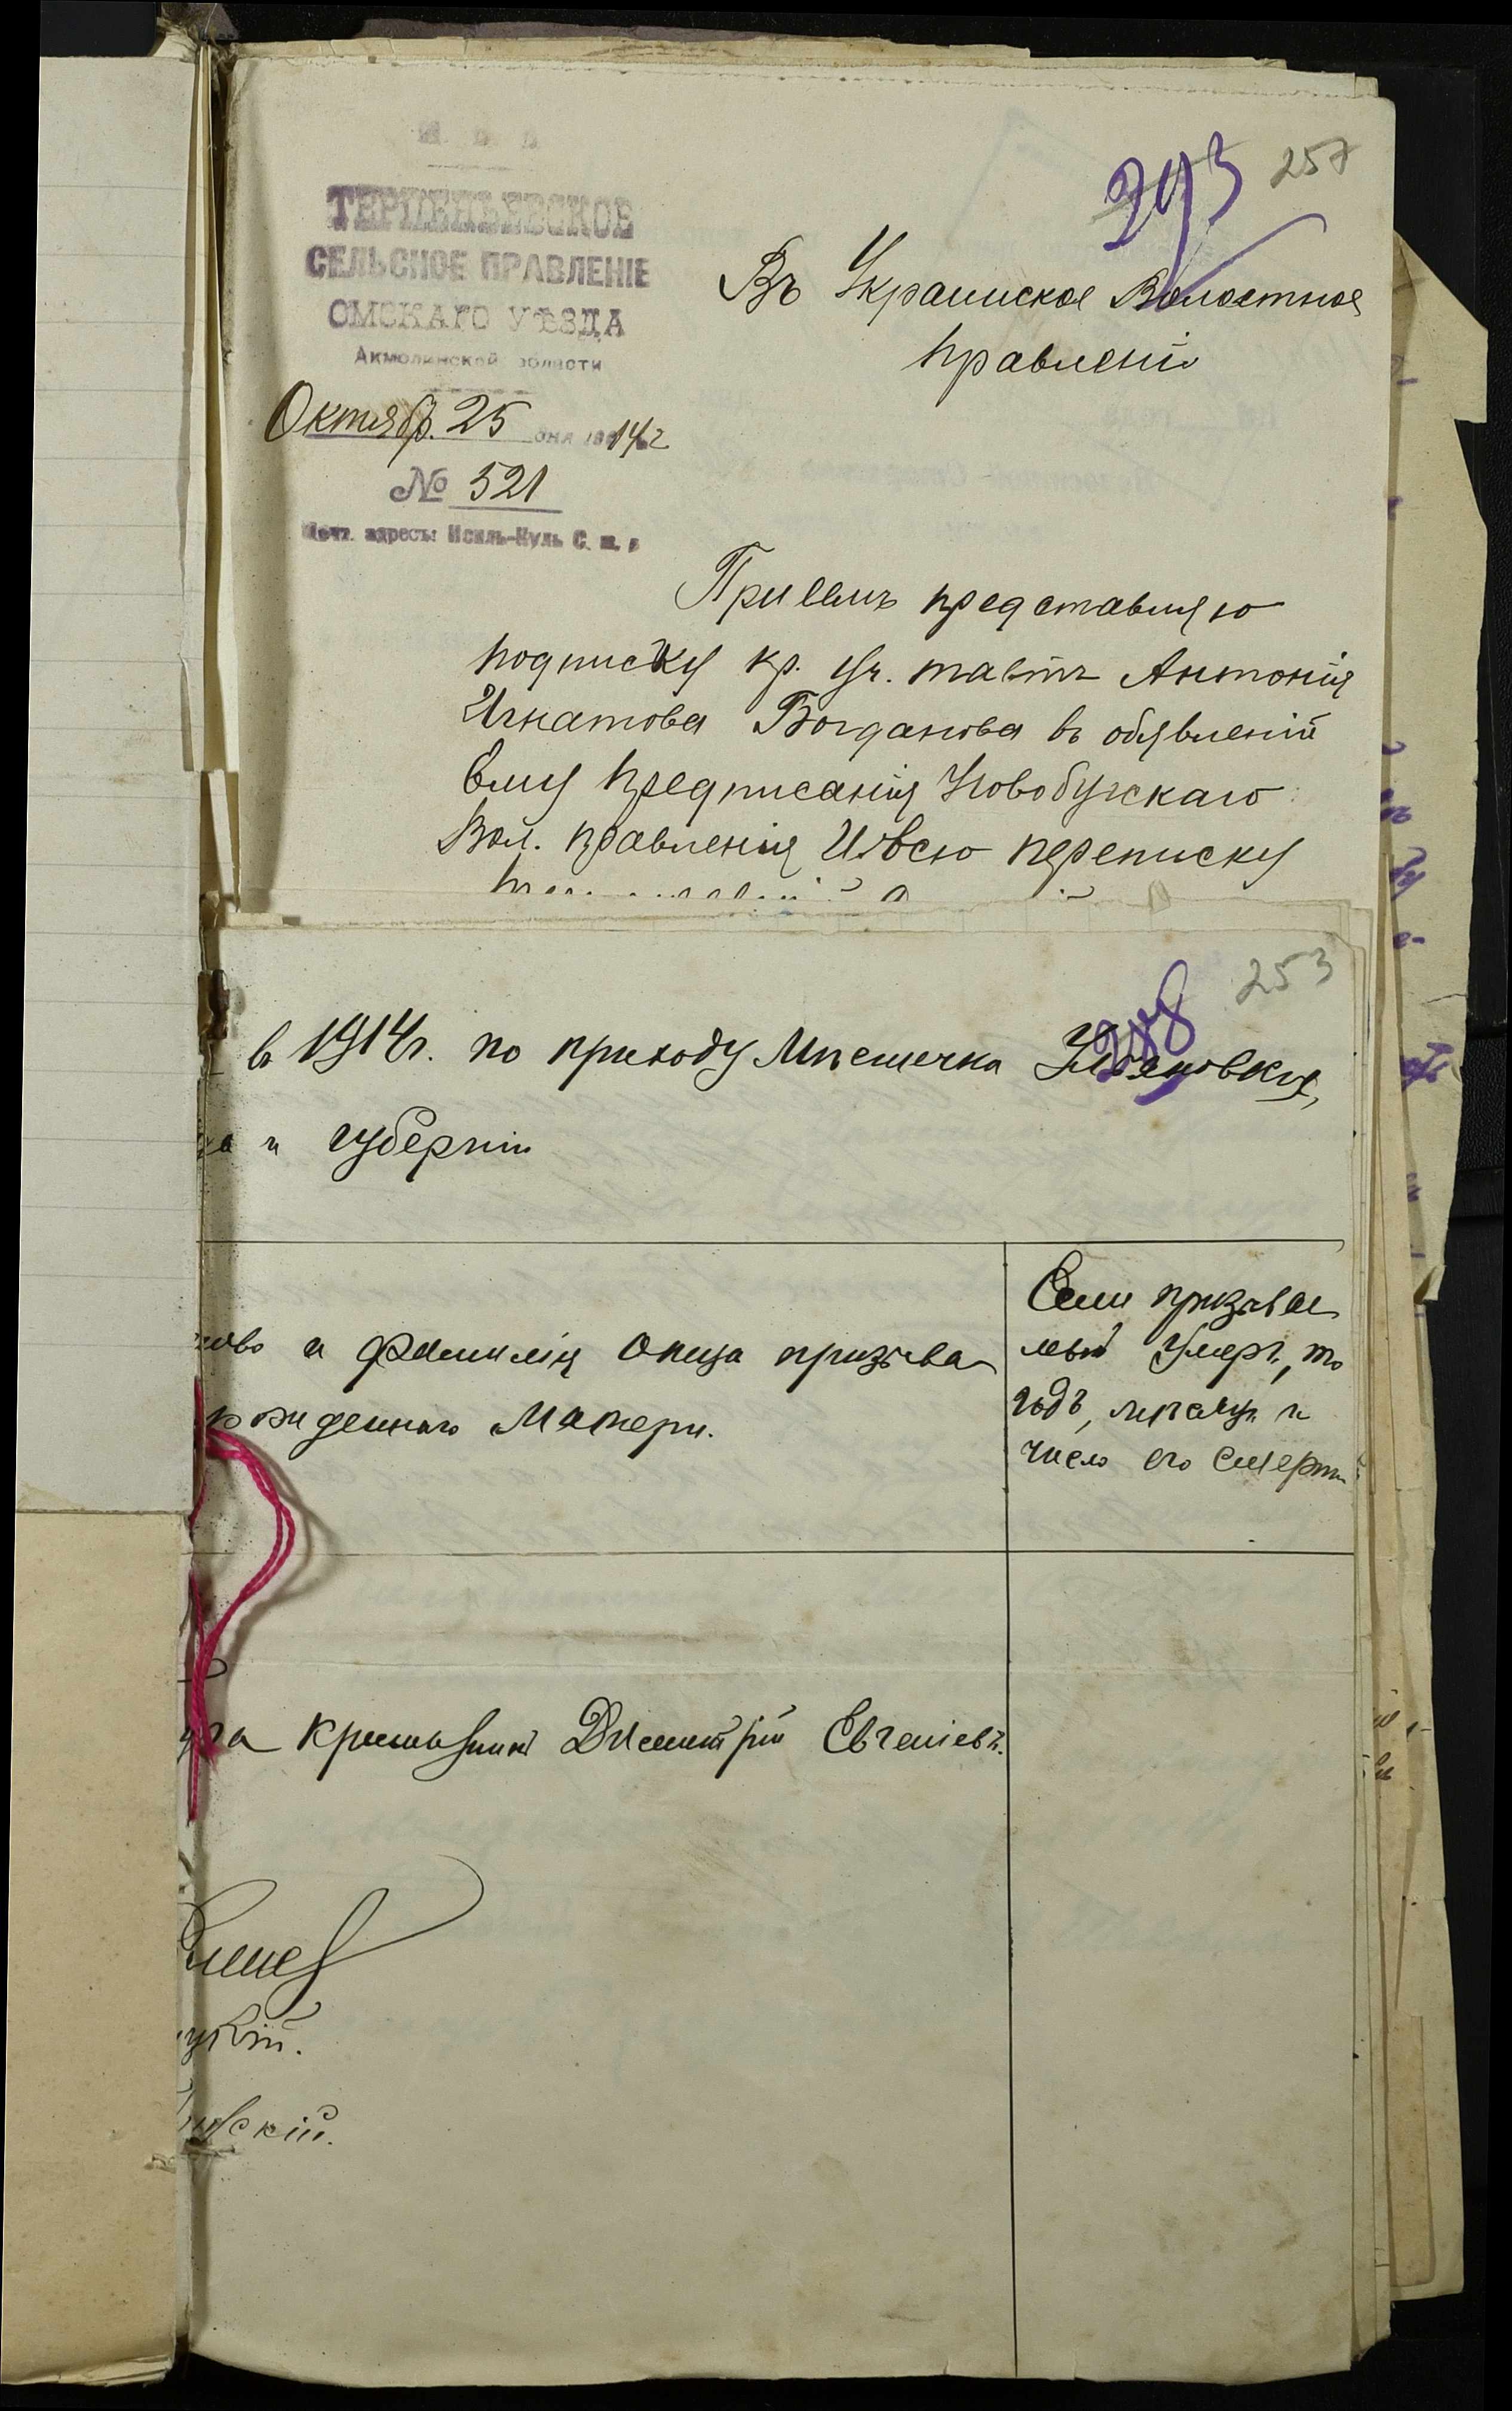 М. В. Д.
ТЕРЕНТЬЕВСКОЕ
СЕЛЬСКОЕ ПРАВЛЕНІЕ
ОМСКАГО УѢЗДА
Акмолинской области
Октябр. 25 дня 1914 г
№ 521
Почт. адресъ: Исиль-Куль С. ж. д
293 257
Въ Украинское Волостное
правленіе
При семъ представляю
подписку кр. уч. Антонія
Игнатова Богданова въ обявленій
Ему предписанія Новобугскаго
Вол. правленія И всю переписку
253
в 1914 г. по приходу Мѣстечка Ульяновки,
и губерніи
и Фамилія Отца призыва
рожденнаго Матери.
Если призывае
мый Умеръ, то
годъ, мѣсяцъ и
число его смерти
Димитрій Евгеніевъ.